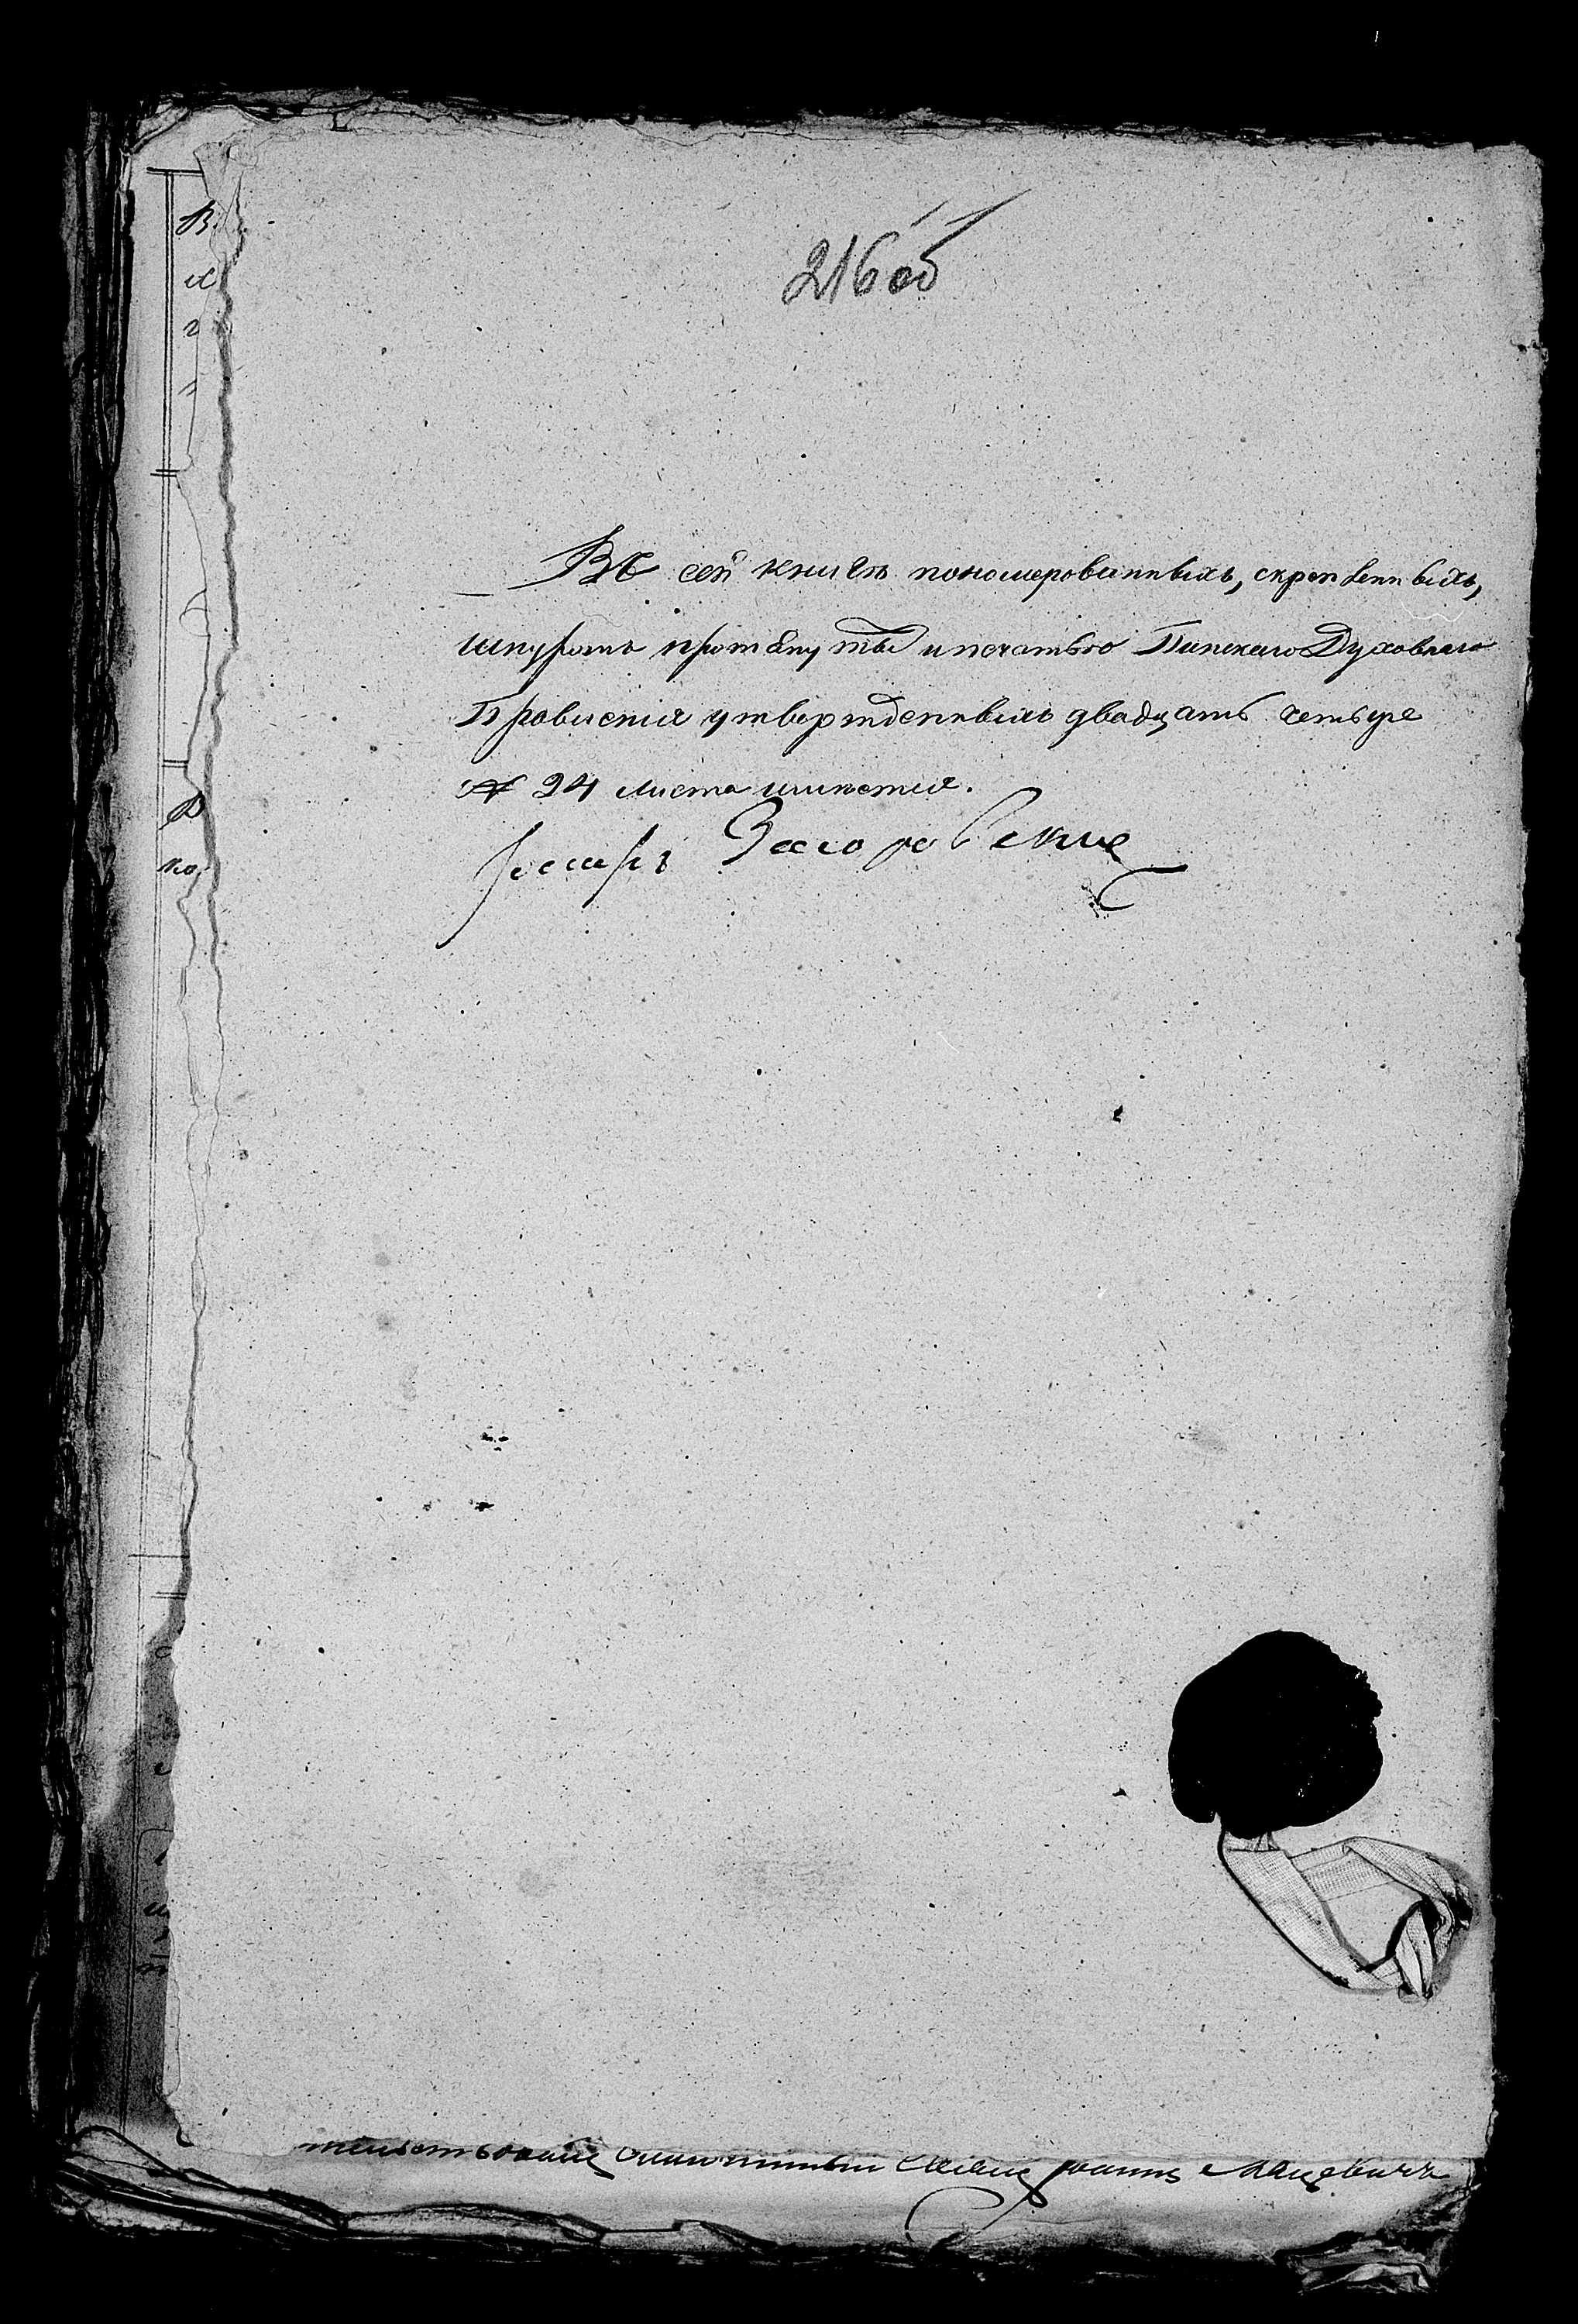 216 об
Въ сей книгѣ пономерованныхъ, скрепленныхъ,
шнуромъ протянутыхъ и печатью Пинскаго Духовнаго
Правленія утвержденныхъ двадцать четыре
№ 24 листа имѣется.
Загоровскій
В
х
г
"
ко
Іоаннъ Мацевичъ